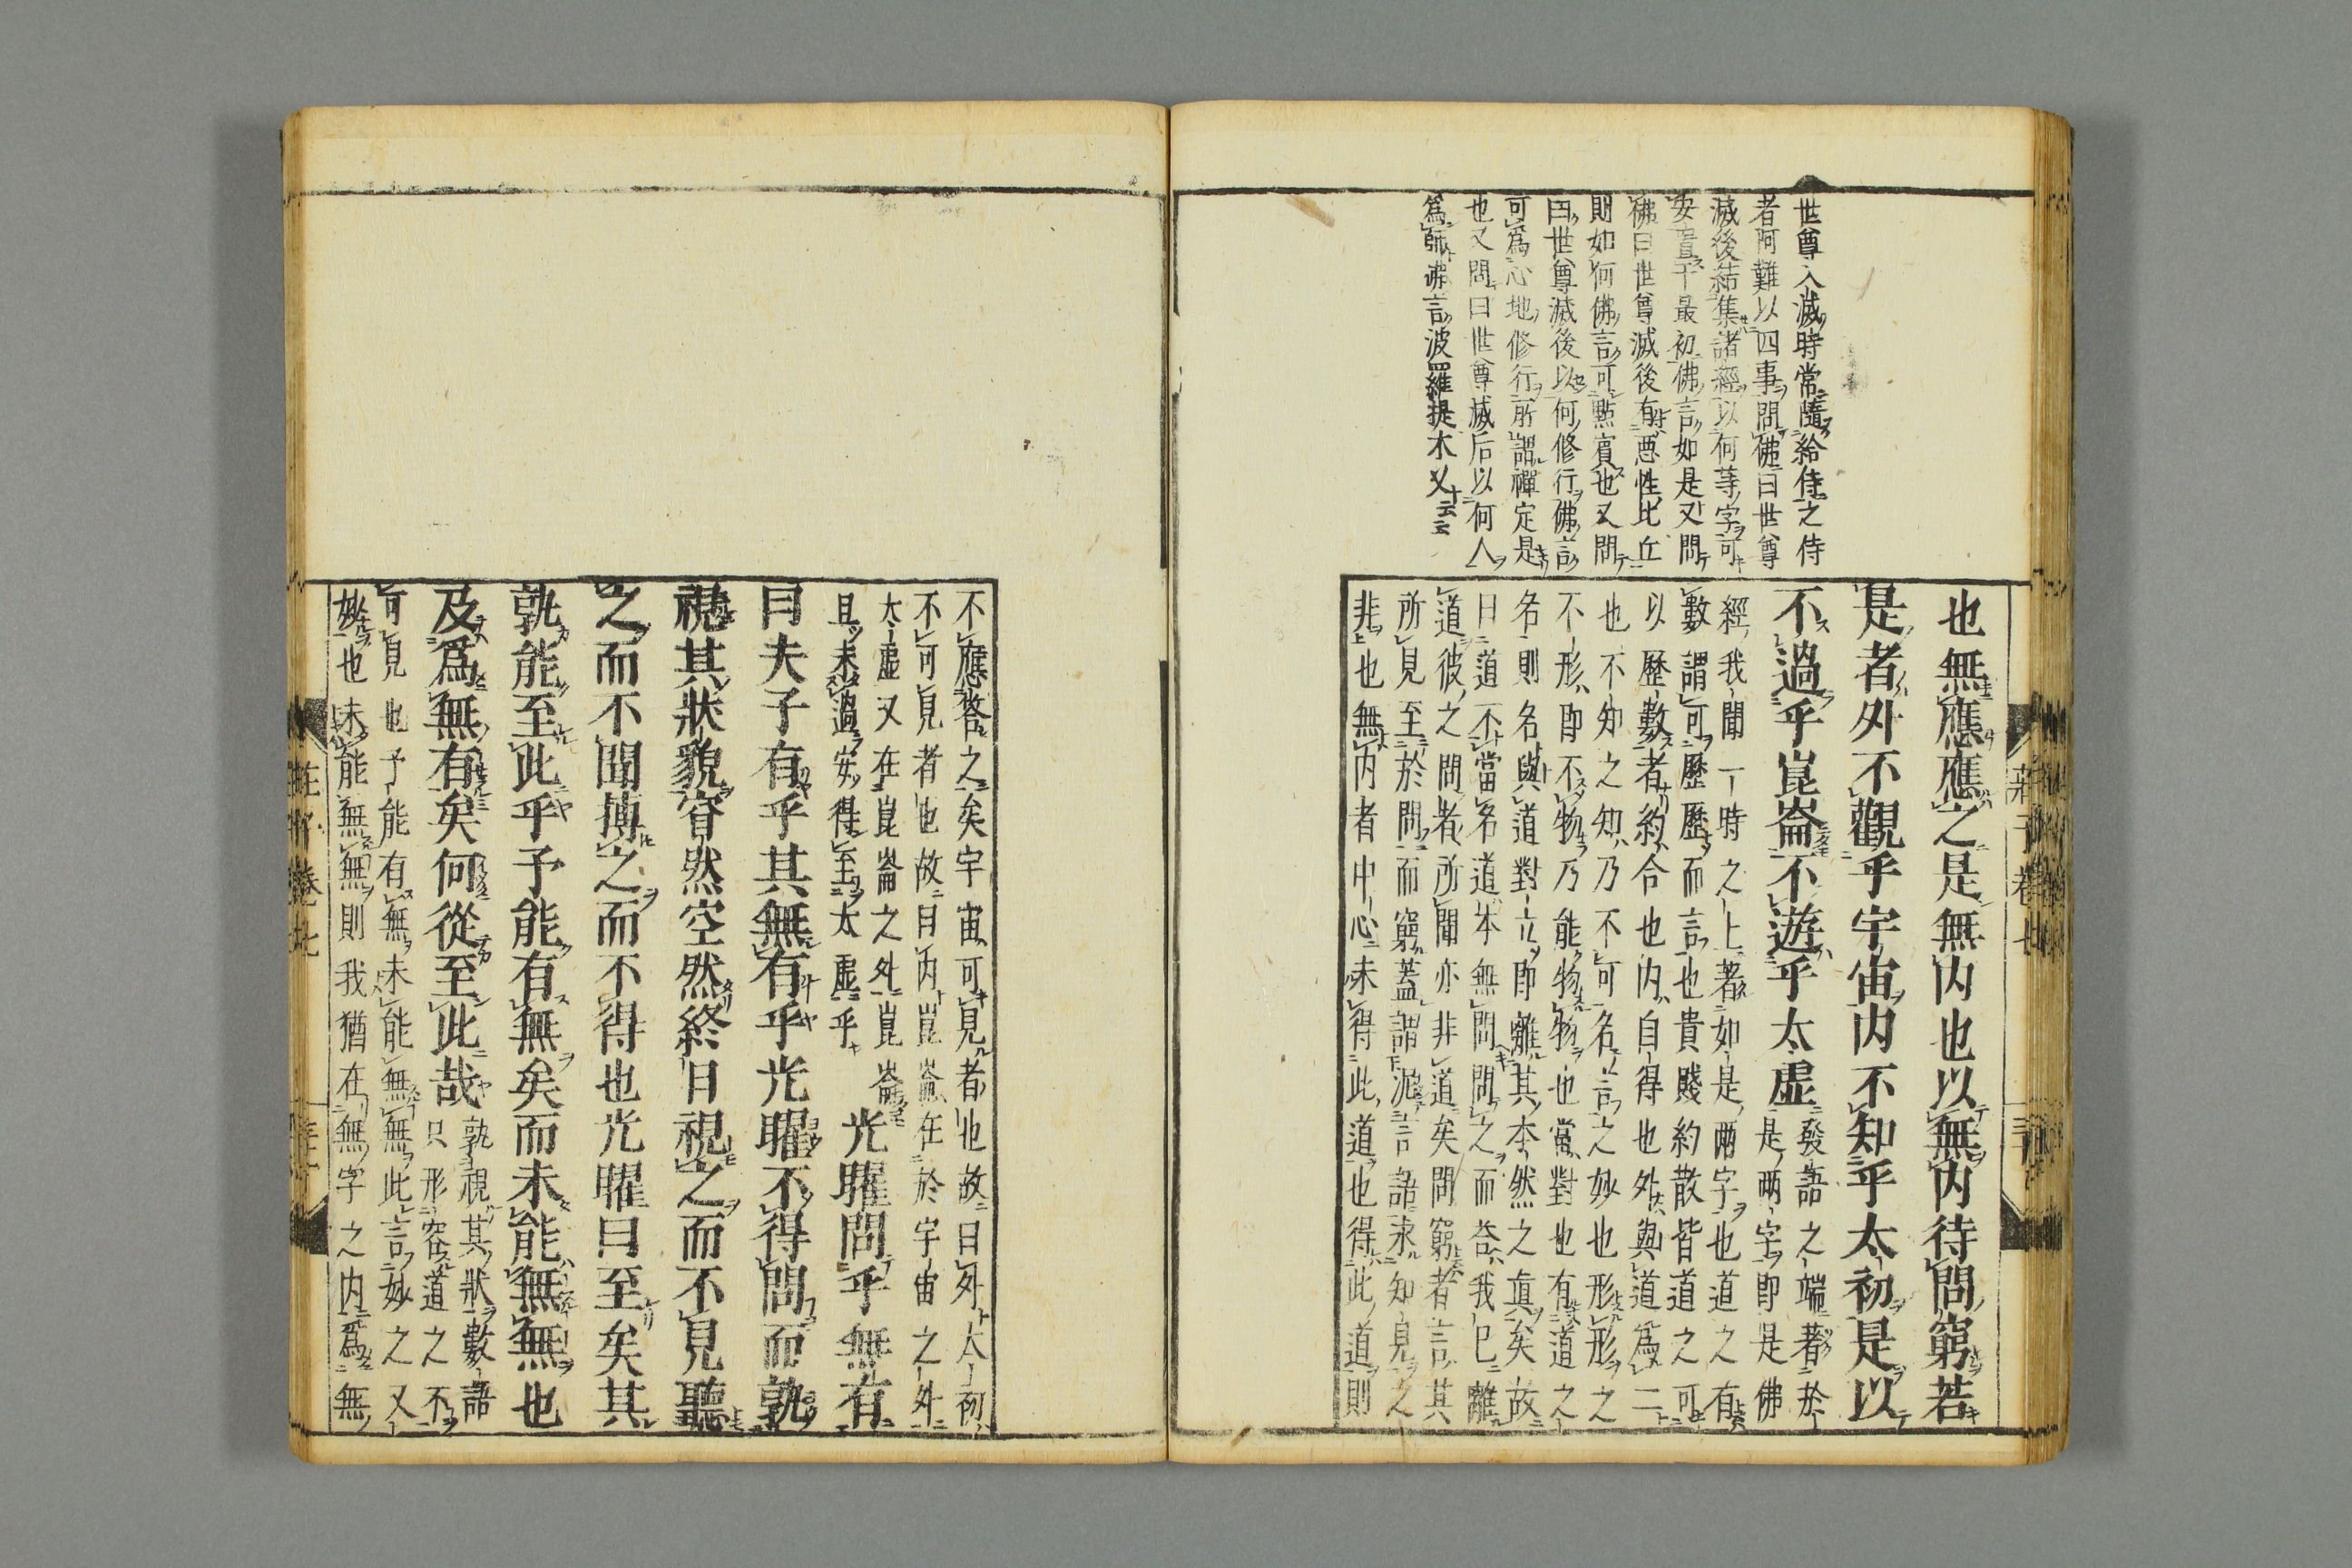 世尊入滅時常隨給侍之侍
者阿難以四事問佛曰世尊
滅後結集諸經以何等字可
安置于最初佛言如是又問
佛曰世尊滅後有悪性比丘
則如何佛言可點賓也又問
曰世尊滅後以何修行佛言
可為心地修行所謂禪定是
也又問曰世尊滅后以何人
爲師佛言波羅提木叉云云
也無應應之是無内也以無内待問窮若
是者外不觀乎宇宙内不知乎太初是以
不過乎崑崙不遊乎太虚
發語之端著於
是兩字即是佛
經我聞一時之上著如是兩字也道之有
數謂可歷歷而言也貴賤約散皆道之可
以歷數者約合也内自得也外與道爲二
也不知之知乃不可名言之妙也形形之
不形即不物乃能物物也當對也有道之
名則名與道對立即離其本然之眞矣故
曰道不當名道本無問問之而荅我已離
道彼之問者所聞亦非道矣問窮者言其
所見至於問而窮蓋謂泥言語求知見之
非也無内者中心未得此道也得此道則
不應答之矣宇宙可見者也故曰外太初
不可見者也故曰内崑崙在於宇宙之外
太虚又在崑崙之外崑崙
且未過安得至太虚乎
光曜問乎無有
曰夫子有乎其無有乎光曜不得問而孰
視其狀貌窅然空然終日視之而不見聽
之而不聞搏之而不得也光曜曰至矣其
孰能至此乎予能有無矣而未能無無也
及爲無有矣何從至此哉
孰視其狀數語
只形容道之不
可見也予能有無未能無無此言妙之又
妙也未能無無則我猶在無字之内爲無